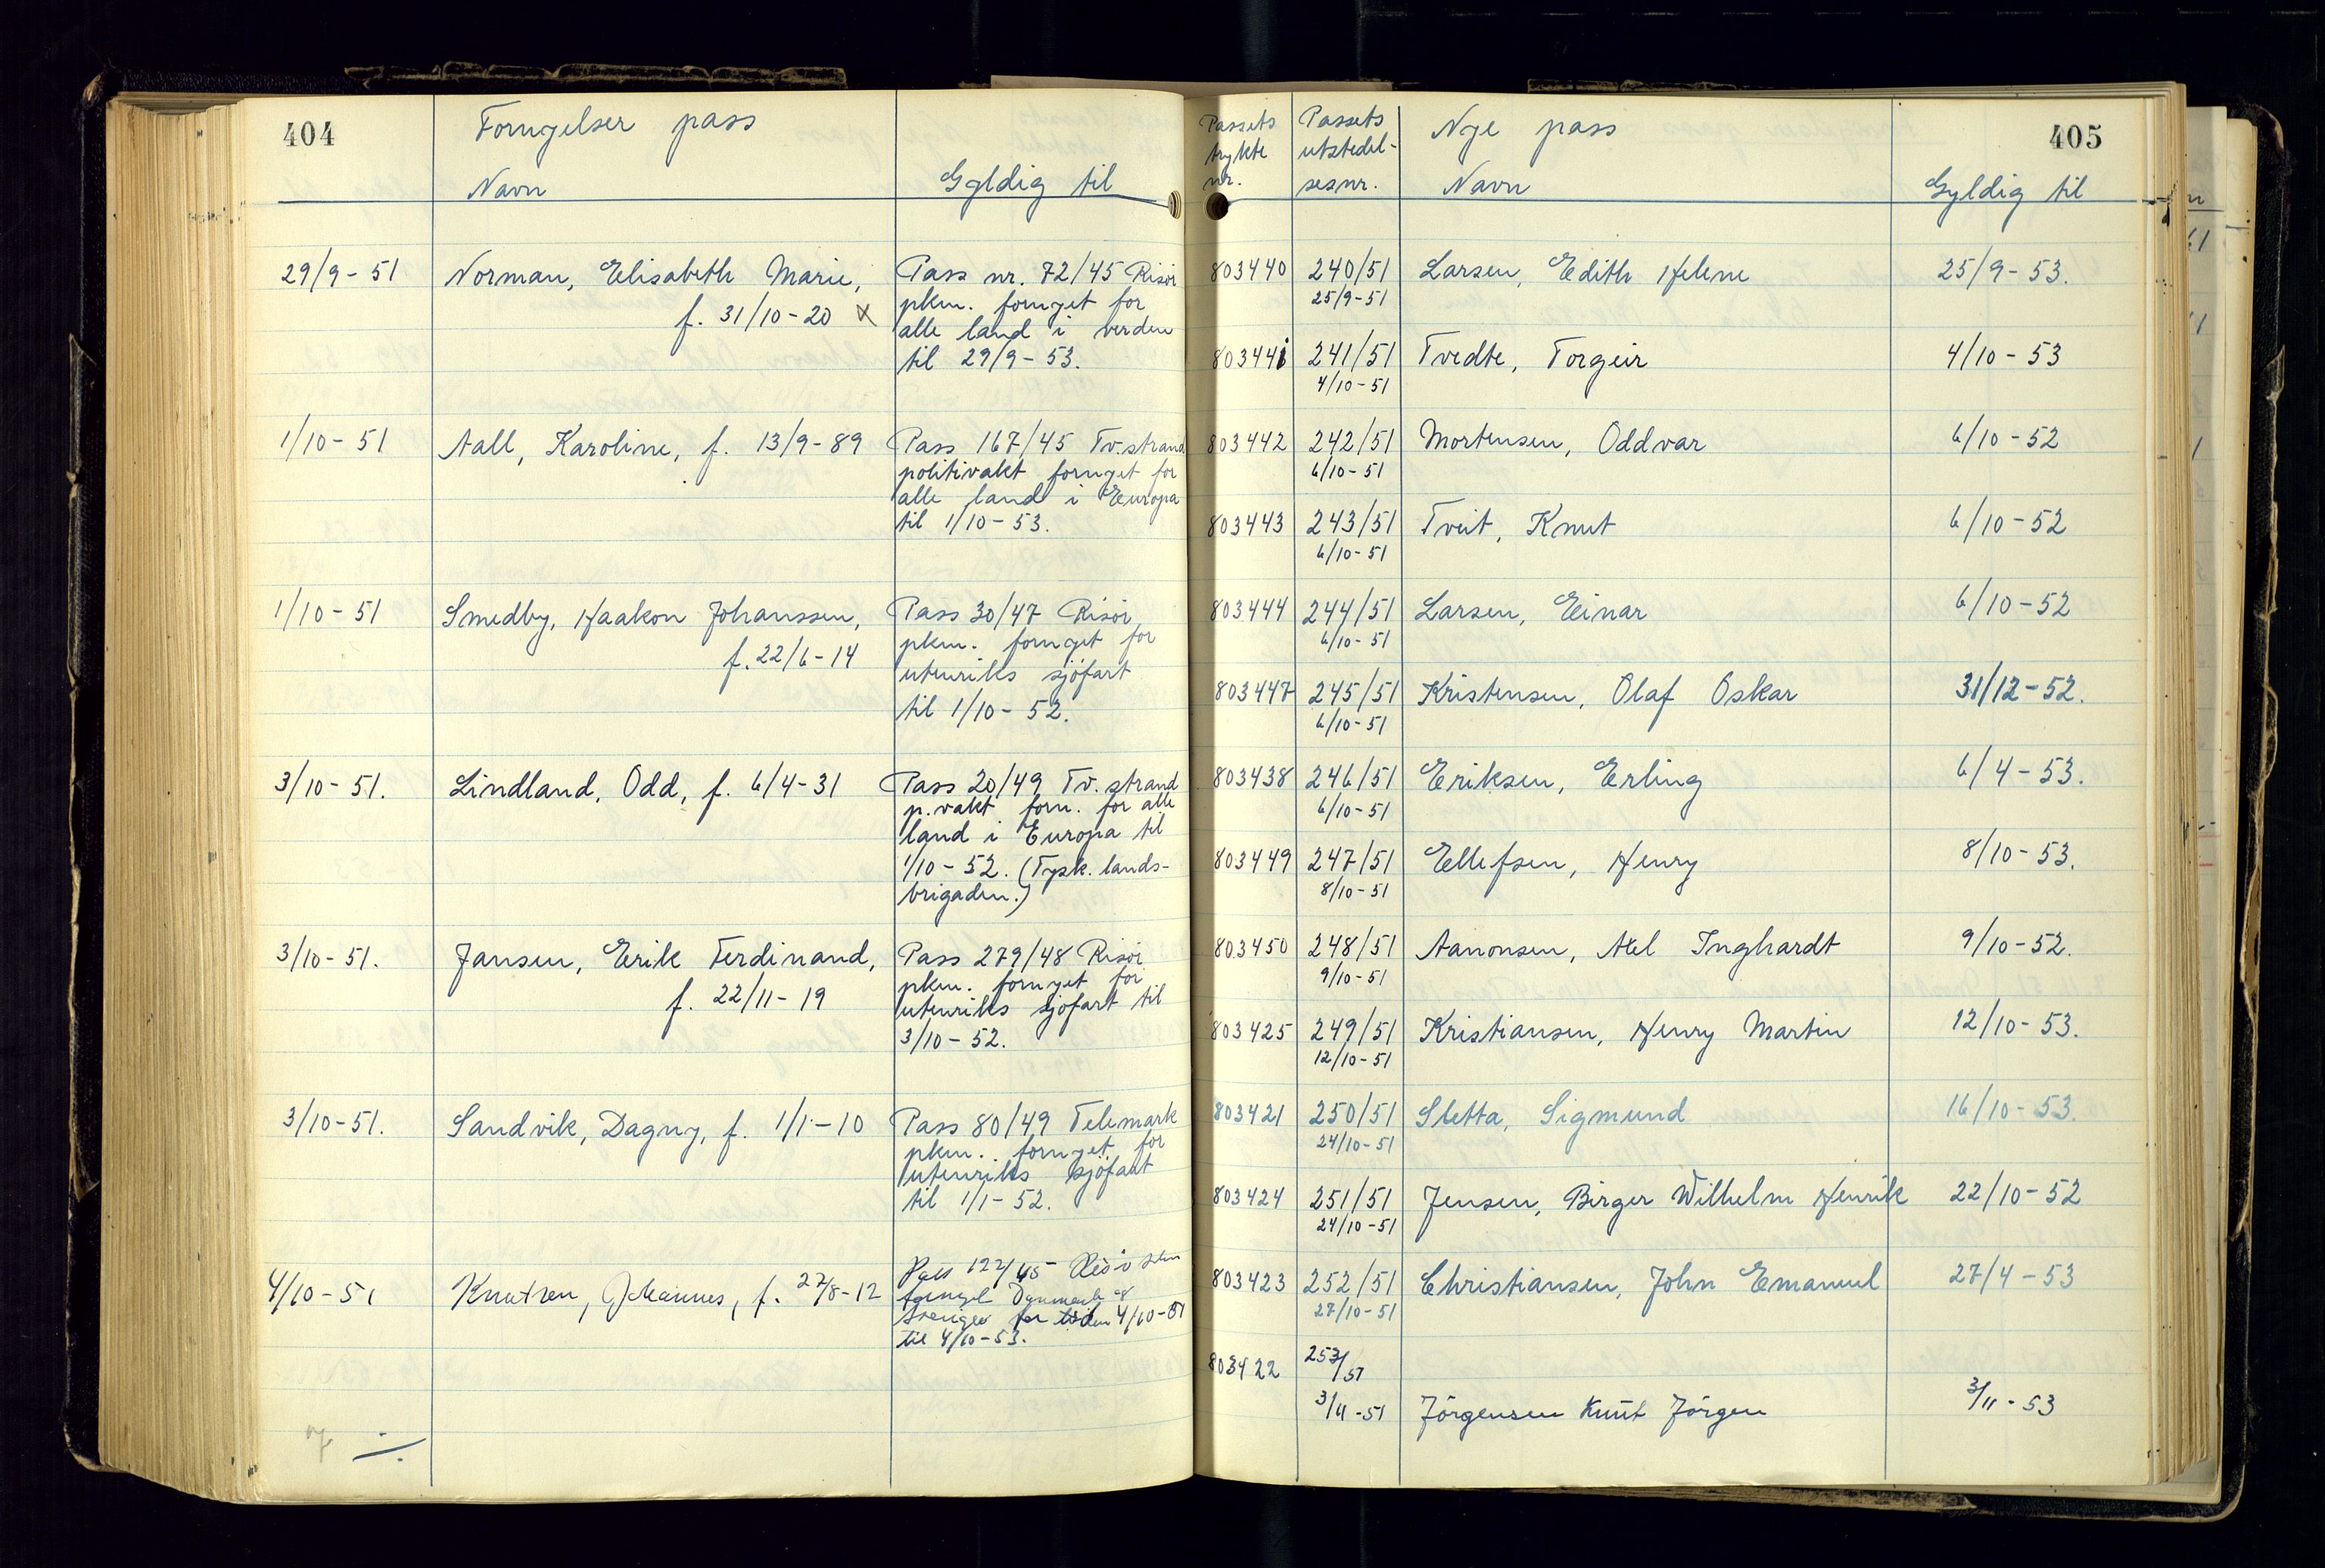 404
Fornyelser pass
Navn
Gyldig til
29/9-51 Norman, Elisabeth Marie, Pass nr. 72/45 Risör
f. 31/10-20 x pkm. fornyet for
alle land i verden
til 29/9-53.
1/10-51 Aall, Karoline, f. 13/9-89 Pass 167/45 Tv.strand
politivakt fornyet for
alle land i Europa
til 1/10-53.
1/10-51 Smedby, Haakon Johanssen, Pass 30/47 Risör
f. 22/6-14 pkm. fornyet for
utenriks sjöfart
til 1/10-52.
3/10-51. Lindland, Odd, f. 6/4-31 Pass 20/49 Tv.strand
p.vakt forn. for alle
land i Europa til
1/10-52. (Tysk. lands-
brigaden.)
3/10-51. Jansen, Erik Ferdinand, Pass 279/48 Risör
f. 22/11-19 pkm. fornyet for
utenriks sjöfart til
3/10-52.
3/10-51. Sandvik, Dagny, f. 1/1-10 Pass 80/49 Telemark
pkm. fornyet for
utenriks sjöfart
til 1/1-52.
4/10-51 Knutsen, Johannes, f. 27/8-12 Pass 122/45 Risör
Danmark
for tiden 4/10-51
til 4/10-53.
7
405
Passets trykte nr.
Passets utstedelsesnr.
Nye pass
Navn
Gyldig til
803440 240/51 Larsen, Edith Helene 25/9-53.
25/9-51
803441 241/51 Tvedte, Torgeir 4/10-53
4/10-51
803442 242/51 Mortensen, Oddvar 6/10-52
6/10-51
803443 243/51 Tveit, Knut 6/10-52
6/10-51
803444 244/51 Larsen, Einar 6/10-52
6/10-51
803447 245/51 Kristensen, Olaf Oskar 31/12-52.
6/10-51
803438 246/51 Eriksen, Erling 6/4-53.
6/10-51
803449 247/51 Ellefsen, Henry 8/10-53.
8/10-51
803450 248/51 Aanonsen, Axel Inghardt 9/10-52.
9/10-51
803425 249/51 Kristiansen, Henry Martin 12/10-53.
12/10-51
803421 250/51 Sletta, Sigmund 16/10-53.
24/10-51
803424 251/51 Jensen, Birger Wilhelm Henrik 22/10-52
24/10-51
803423 252/51 Christiansen, John Emanuel 27/4-53
27/10-51
803422 253/51
3/11-51 Jörgensen Knut Jörgen 3/11-53